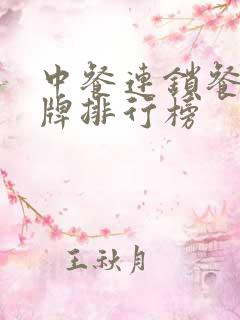 中餐連鎖餐
牌排行榜
王秋月